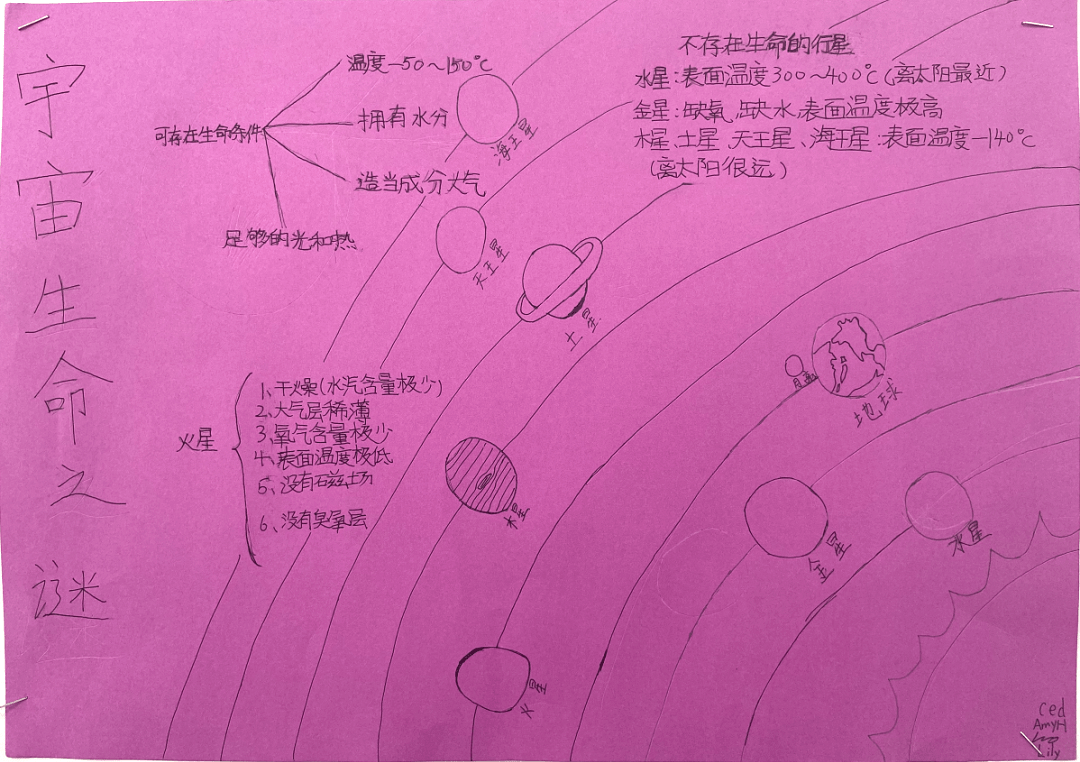 宇宙生命之谜
可存在生命条件
温度-50~150℃
拥有水分
造当成分大气
足够的光和热
不存在生命的行星
水星:表面温度300~400℃(离太阳最近)
金星:缺氧,缺水,表面温度极高
木星、土星、天王星、海王星:表面温度-140℃
(离太阳很远)
海王星
天王星
土星
月亮
地球
火星
1、干燥(水汽含量极少)
2、大气层稀薄
3、氧气含量极少
4、表面温度极低
5、没有磁场
6、没有臭氧层
木星
金星
水星
火星
Ced
AmyH
Lily